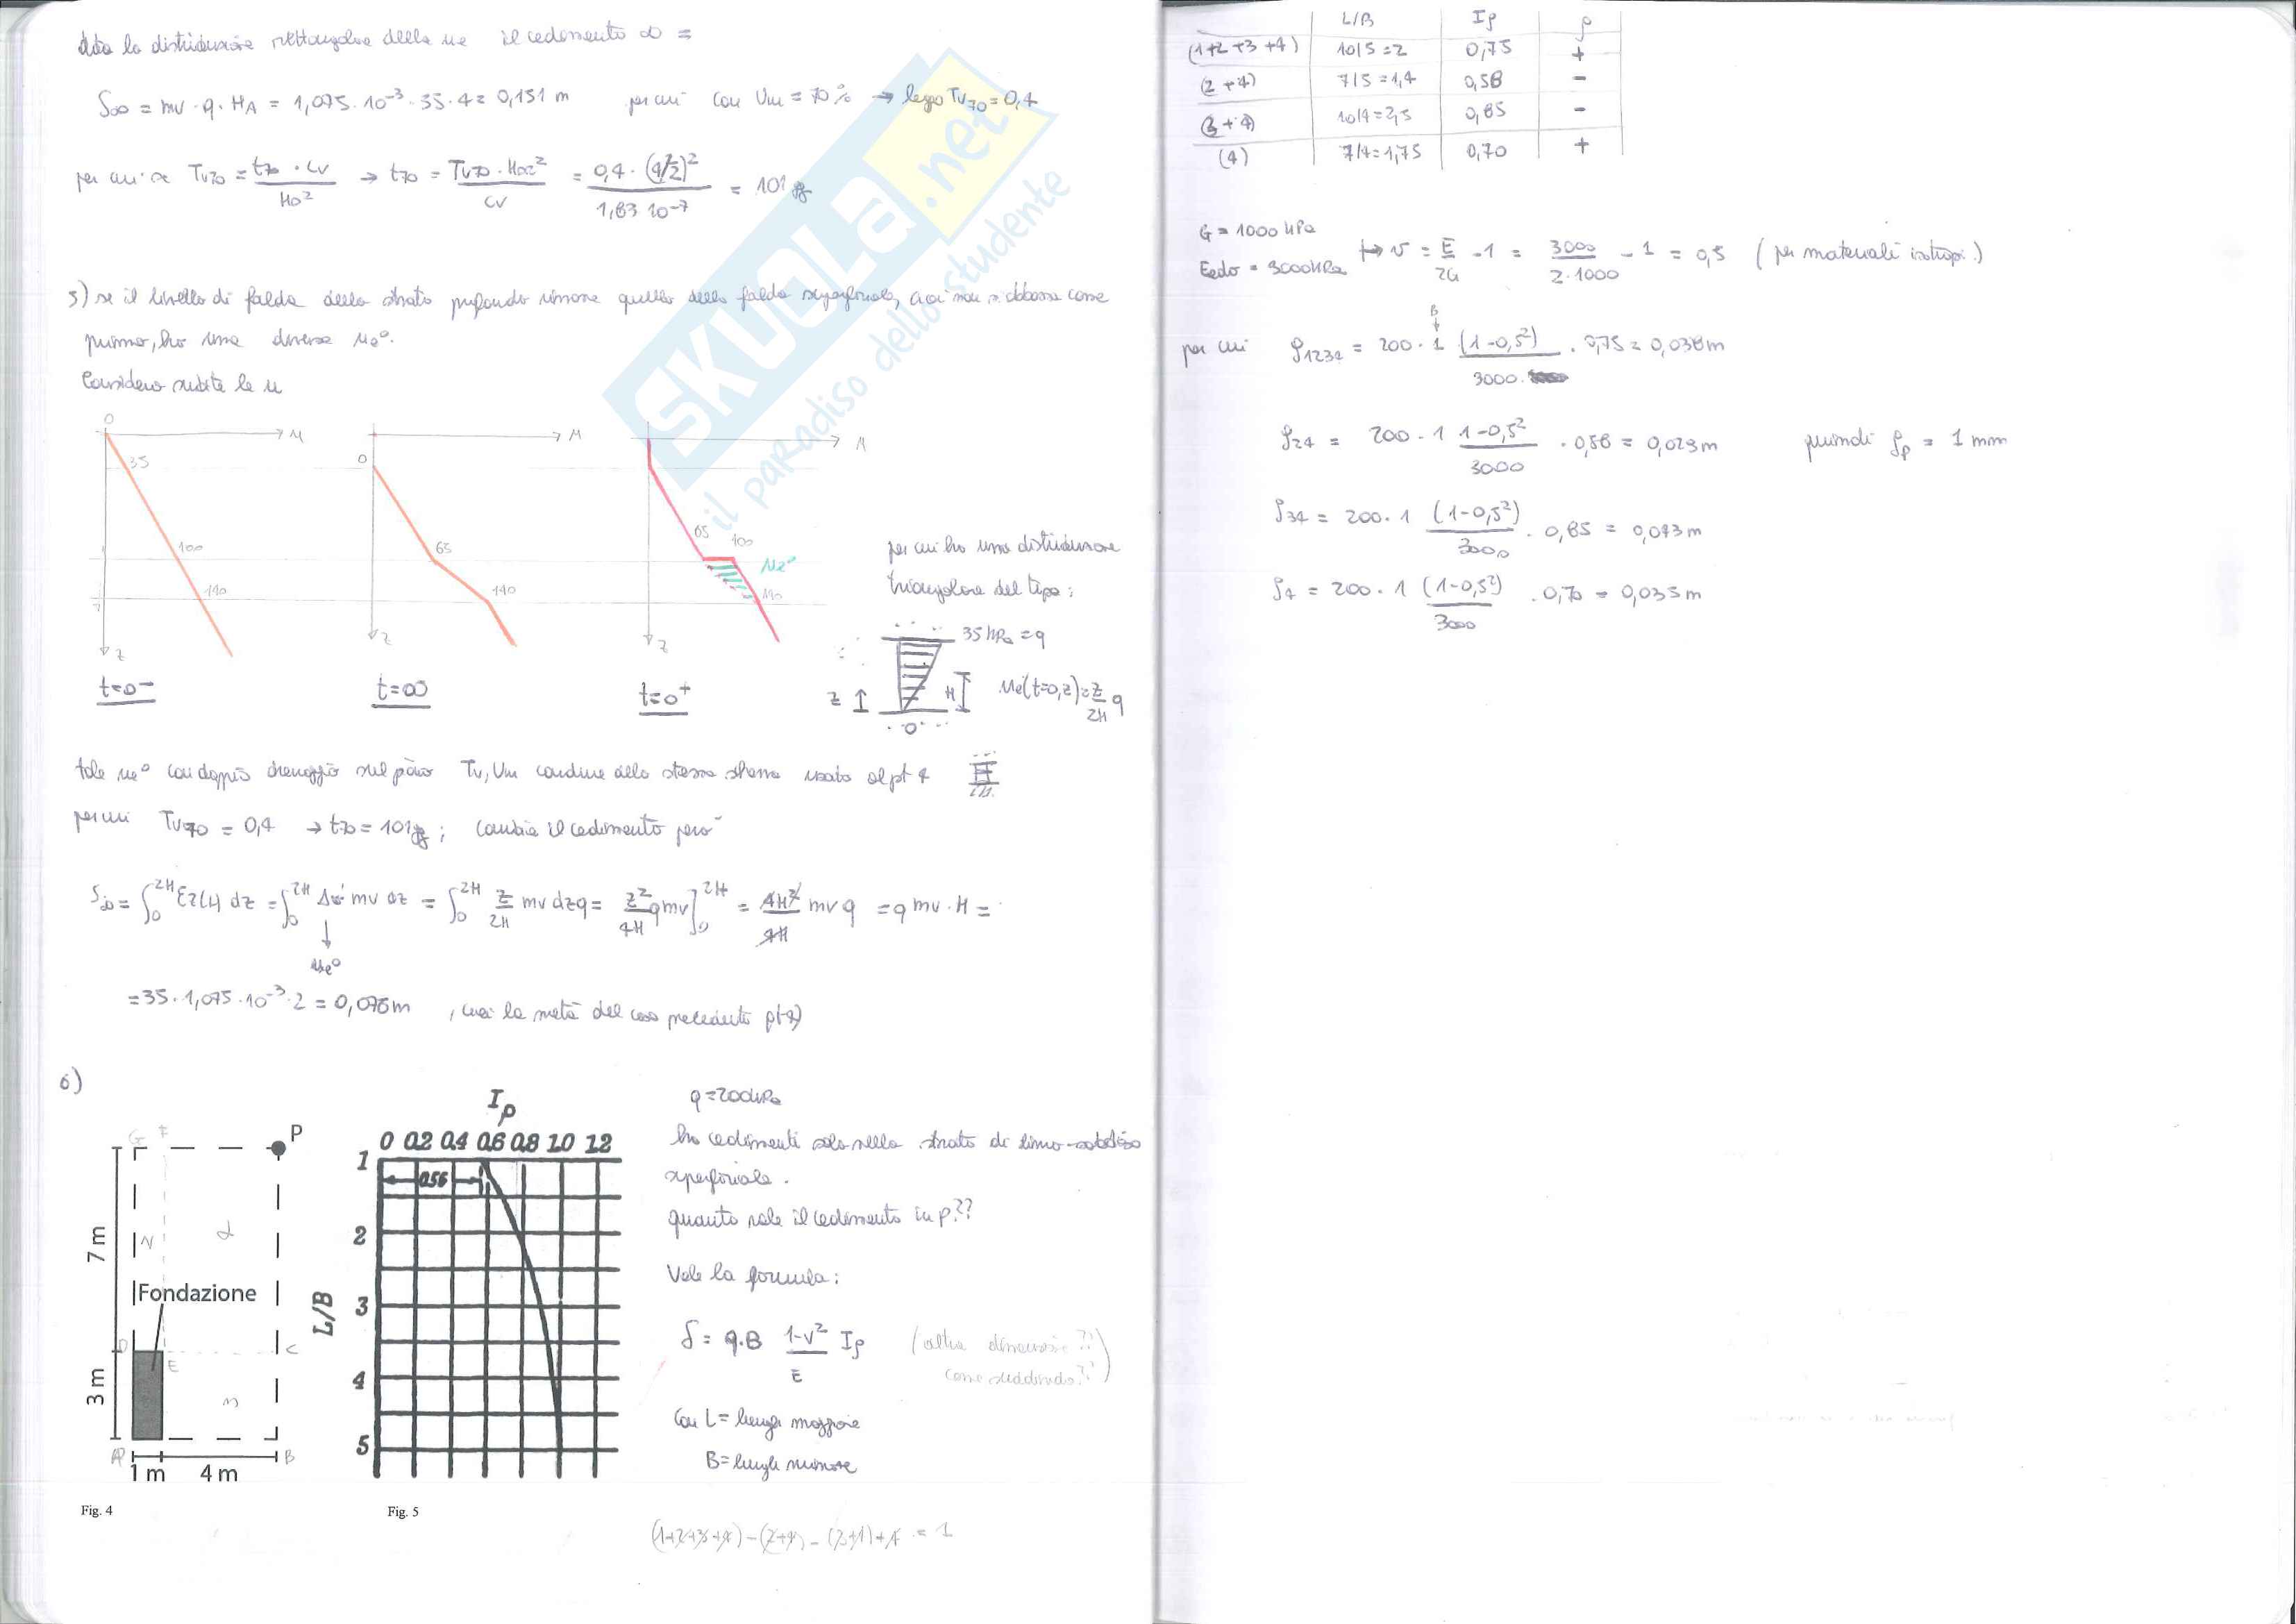 data la distribuzione rettangolare della ue il cedimento ∞ =
S∞ = mv · q · HA = 1,075 · 10⁻³ · 35 · 4 = 0,151 m per cui con Um = 70% → leggo Tv70 = 0,4
per cui se Tv70 = t70 · cv / H0² → t70 = Tv70 · H0² / cv = 0,4 · (4/2)² / 1,83 10⁻⁷ = 101 gg
5) se il livello di falda dello strato profondo rimane quello della falda superficiale, cioè non si abbassa come
primo, ho una diversa ue°.
Considero subito le u
0
u
35
100
140
z
t=0⁻
u
0
65
140
z
t=∞
u
65
100
ue°
140
z
t=0⁺
per cui ho una distribuzione
triangolare del tipo:
35 kPa = q
z
H
ue(t=0,z) = z/2H q
0
tale ue° con doppio drenaggio sul piano Tv, Um conduce allo stesso schema usato al pt 4
per cui Tv70 = 0,4 → t70 = 101 gg ; cambia il cedimento però
S∞ = ∫₀²ᴴ εz(H) dz = ∫₀²ᴴ Δσ' mv dz = ∫₀²ᴴ z/2H mv dz q = z²/4H q mv ]₀²ᴴ = 4H²/4H mv q = q mv · H =
ue°
= 35 · 1,075 · 10⁻³ · 2 = 0,076 m , cioè la metà del caso precedente pt 4)
6)
G F P
7 m
N
Fondazione
D E C
3 m
AP B
1 m 4 m
Fig. 4
Iρ
0 0.2 0.4 0.6 0.8 1.0 1.2
0.56
L/B
1
2
3
4
5
Fig. 5
q = 200 kPa
ho cedimenti solo nello strato di limo-sabbioso
superficiale.
quanto vale il cedimento in p.??
Vale la formula:
δ = q·B 1-ν² / E Iρ (altre dimensioni ?!
come suddivido??)
Con L = lungh maggiore
B = lungh minore
(1+2+3+4) - (2+4) - (3+4) + 4 = 1
L/B Iρ ρ
(1+2+3+4) 10/5 = 2 0,75 +
(2+4) 7/5 = 1,4 0,58 -
(3+4) 10/4 = 2,5 0,85 -
(4) 7/4 = 1,75 0,70 +
G = 1000 kPa
Eedo = 3000 kPa
↦ ν = E/2G - 1 = 3000 / 2·1000 - 1 = 0,5 (per materiali isotropi)
B
per cui ρ1234 = 200 · 1 (1-0,5²) / 3000 · 0,75 = 0,038 m
ρ24 = 200 · 1 1-0,5² / 3000 · 0,58 = 0,029 m quindi ρp = 1 mm
ρ34 = 200 · 1 (1-0,5²) / 3000 · 0,85 = 0,043 m
ρ4 = 200 · 1 (1-0,5²) / 3000 · 0,70 = 0,035 m
SKUOLA.net
il paradiso dello studente